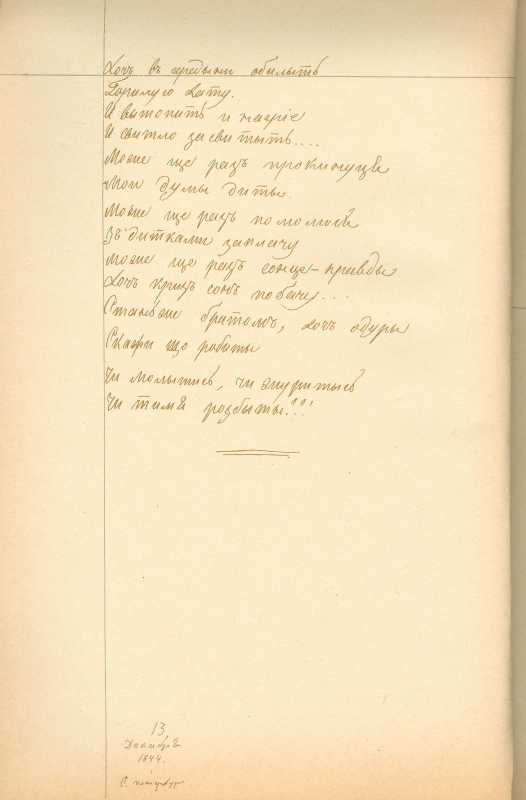 Хочь въ середыни обилыть
Горилую хату.
И вытопить и нагріе
И свитло засвитыть....
Може ще разъ прокинуця
Мои думы диты
Може ще разъ помолюсь
Зъ дитками заплачу
Може ще разъ сонце-правды
Хочъ кризь сонъ побачу...
Стань же братомъ, хочъ одуры
Скажи що робыты
Чи молытысь, чи журитысь
Чи тимя розбыты!!!
13
Декабря
1844.
С. петербург